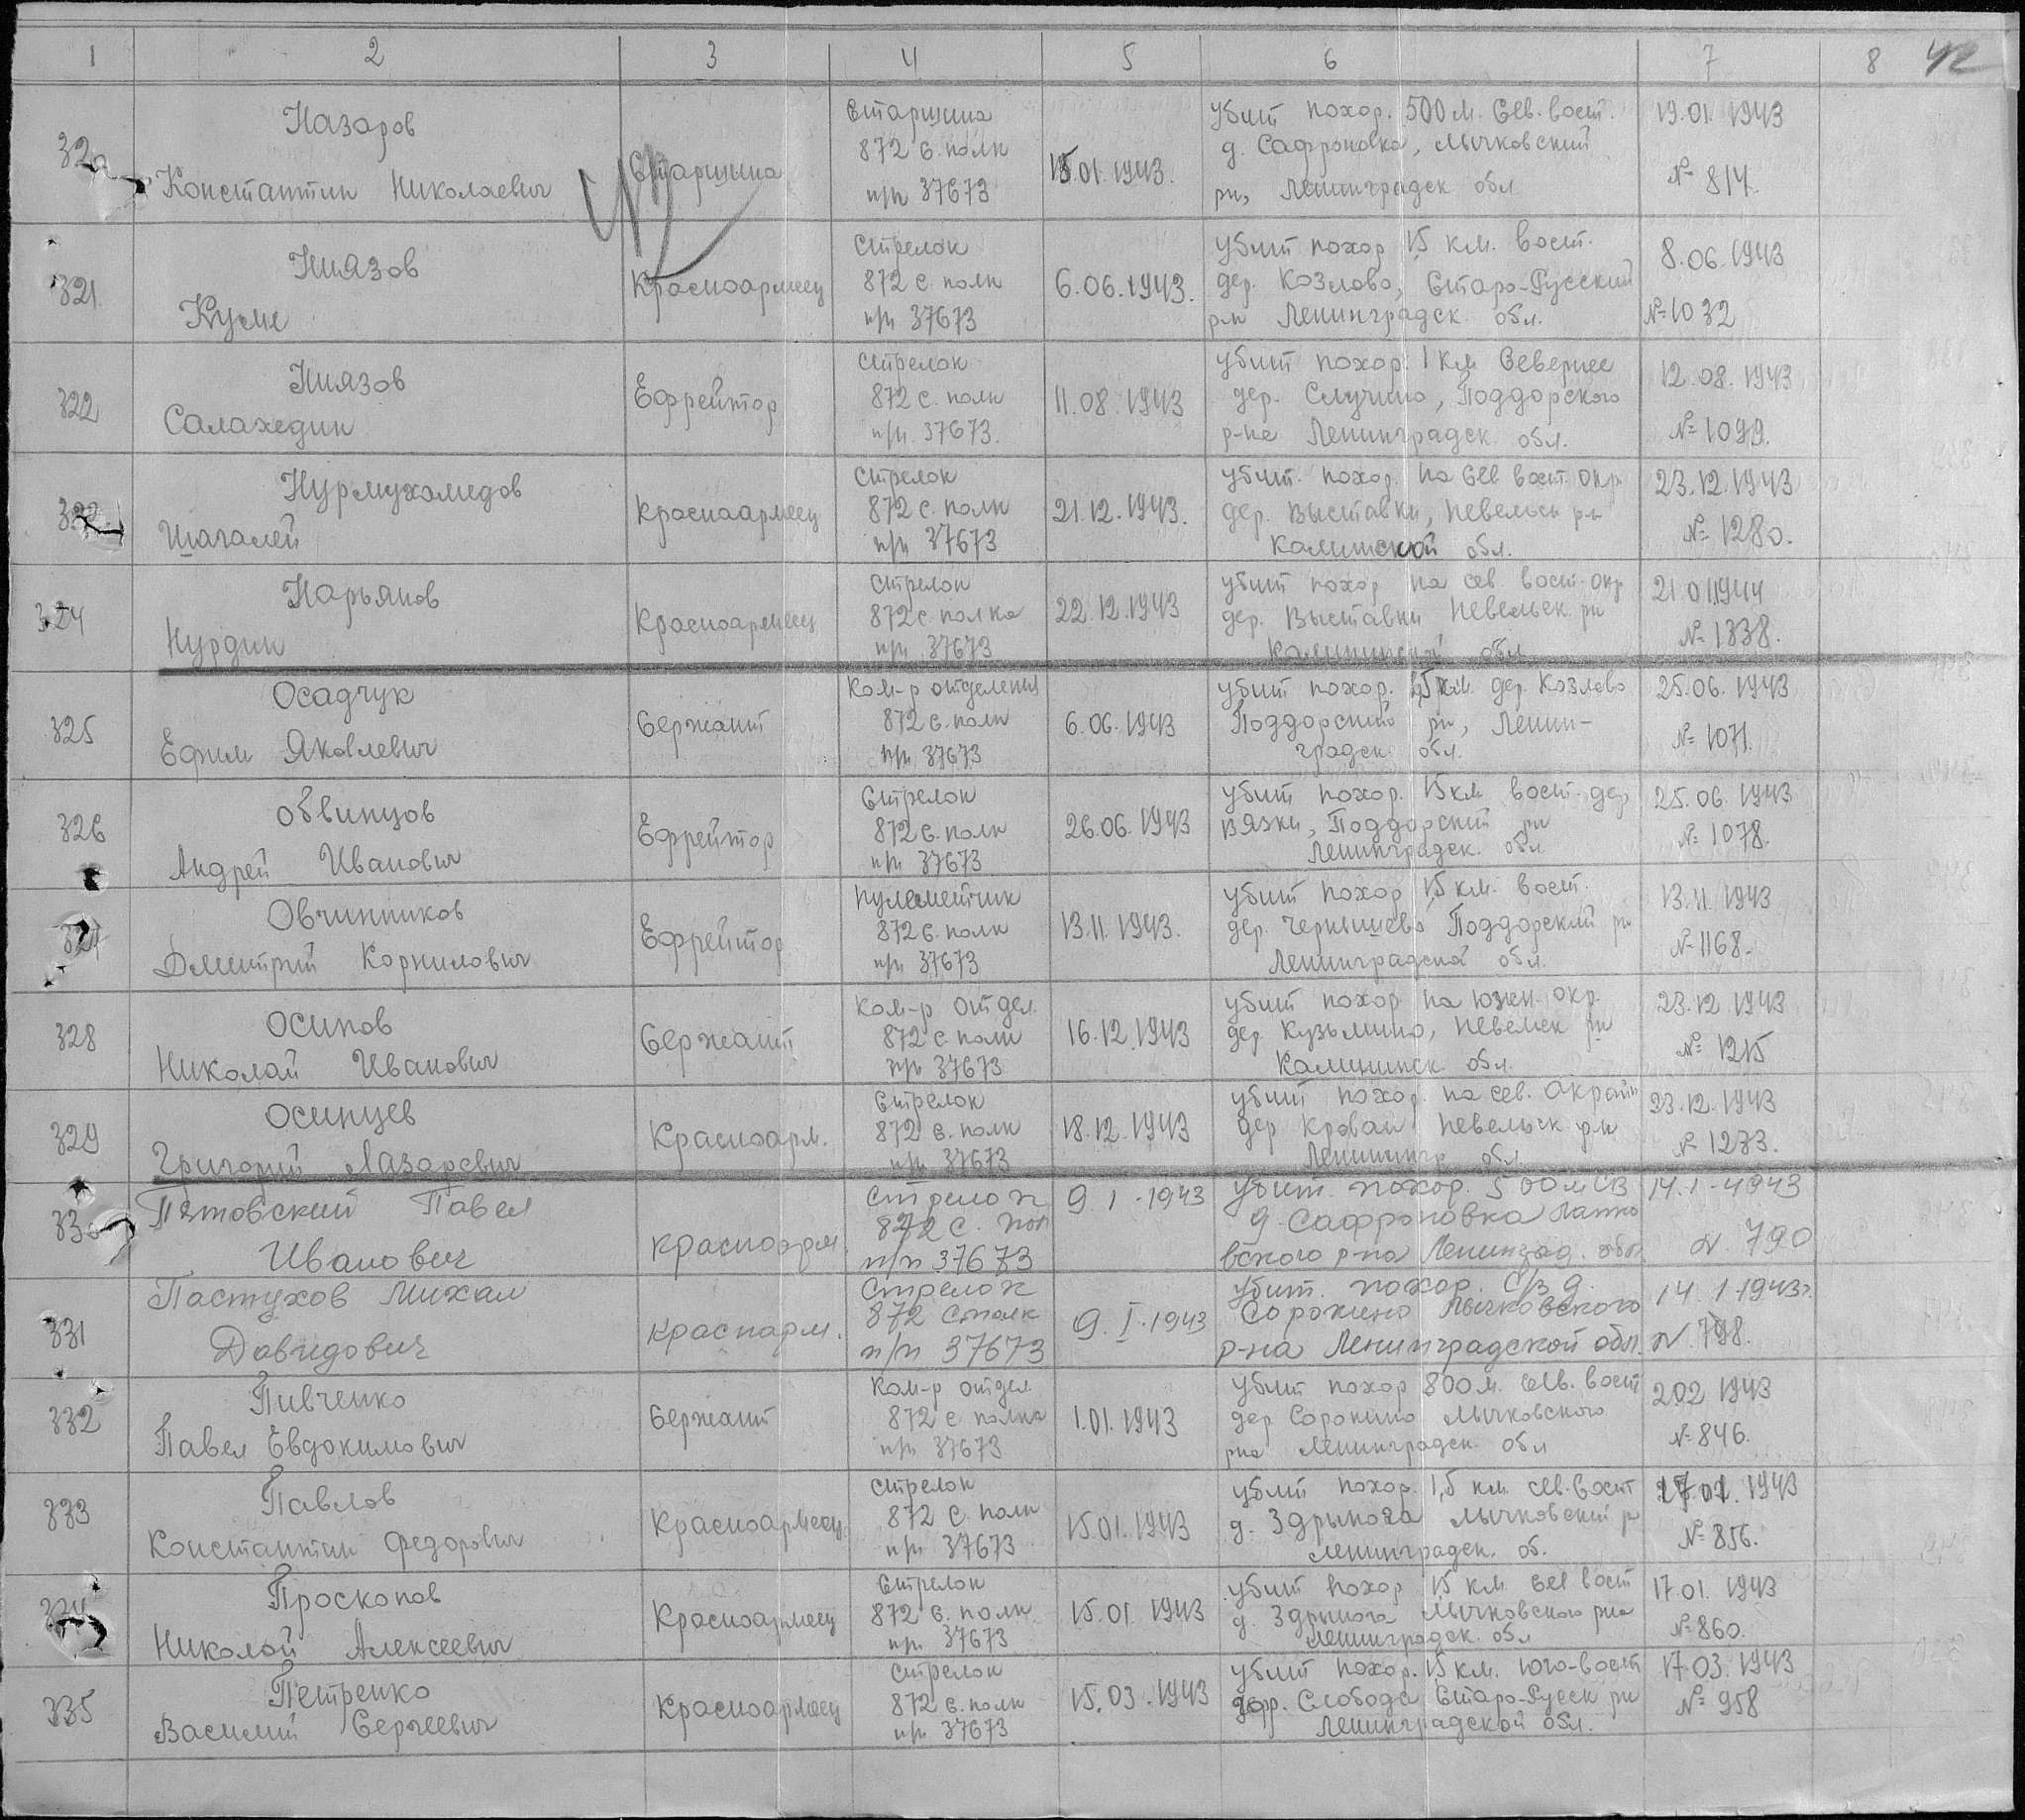 1 2 3 4 5 6 7 8 42
320 Назаров Константин Николаевич Старшина Старшина 872 с. полк п/п 37673 15.01.1943. убит похор. 500 м. Сев. вост. д. Сафроновка, Лычковский рн, Ленинградск обл 19.01.1943 № 814.
321 Ниязов Красноармеец Стрелок 872 с. полк п/п 37673 6.06.1943. убит похор 1,5 км. вост. дер. Козлово, Старо-Русский р-н Ленинградск. обл. 8.06.1943 № 1032
322 Ниязов Салахедин Ефрейтор Стрелок 872 с. полк п/п. 37673. 11.08.1943 убит похор. 1 км Севернее дер. Случино, Поддорского р-на Ленинградск. обл. 12.08.1943 № 1099.
323 Нурмухамедов Шагалей Красноармеец Стрелок 872 с. полк п/п 37673 21.12.1943. убит. похор. на Сев вост. окр. дер. Выставки, Невельск рн Калинской обл. 23.12.1943 № 1280.
324 Нарьянов Нурдин Красноармеец Стрелок 872 с. полка п/п 37673 22.12.1943 убит похор на сев. вост-окр дер. Выставки Невельск. рн Калининской обл 21.01.1944 № 1338.
325 Осадчук Ефим Яковлевич Сержант Ком-р отделения 872 с. полк п/п 37673 6.06.1943 убит похор. 1,5 км. дер. Козлово Поддорский рн, Ленин- градск обл. 25.06.1943 № 1071.
326 Обвинцов Андрей Иванович Ефрейтор Стрелок 872 с. полк п/п 37673 26.06.1943 убит похор. 1,5 км вост. дер Вязки, Поддорский рн Ленинградск. обл 25.06.1943 № 1078.
327 Овчинников Дмитрий Корнилович Ефрейтор Пулеметчик 872 с. полк п/п 37673 13.11.1943. убит похор 1,5 км. вост. дер. Чернышево Поддорский рн Ленинградской обл. 13.11.1943 № 1168.
328 Осипов Николай Иванович Сержант Ком-р отдел. 872 с. полк п/п 37673 16.12.1943 убит похор на южн. окр. дер. Кузьмино, Невельск рн Калининск. обл. 23.12.1943 № 1215
329 Осинцев Григорий Лазаревич Красноарм. Стрелок 872 с. полк п/п 37673 18.12.1943 убит похор. на сев. окраин дер Невельск рн Ленинингр обл 23.12.1943 № 1273.
330 Пятовский Павел Иванович красноарм. Стрелок 872 с. пол п/п 37673 9.1-1943 Убит. похор. 500 м СВ д. Сафроновка вского р-на Ленинград. обл. 14.1-1943 N 790
331 Пастухов Михал Давидович краснарм. Стрелок 872 с полк п/п 37673 9.I.1943 Убит. похор. С/З д. Сорокино Лычковского р-на Ленинградской обл. 14.1.1943г. N 798.
332 Пивченко Павел Евдокимович Сержант Ком-р отдел 872 с. полка п/п 37673 1.01.1943 убит похор 800 м. сев. вост дер Сорокино Лычковского рна Ленинградск. обл 2.02 1943 № 846.
333 Павлов Константин Федорович Красноармеец. Стрелок 872 с. полк п/п 37673 15.01.1943 убит похор. 1,5 км. сев. вост д. Здрынога Лычковский р Ленинградск. об. 1943 № 856.
334 Просконов Николой Алексеевич Красноармеец Стрелок 872 с. полк п/п 37673 15.01.1943 убит похор 1,5 км. сев вост д. Здрынога Лычковского рна Ленинградск. обл 17.01.1943 № 860.
335 Петренко Василий Сергеевич Красноармеец Стрелок 872 с. полк п/п 37673 15.03.1943 убит похор. 1,5 км. юго-вост дер. Слобода Старо-Русск рн Ленинградской обл. 17.03.1943 № 958